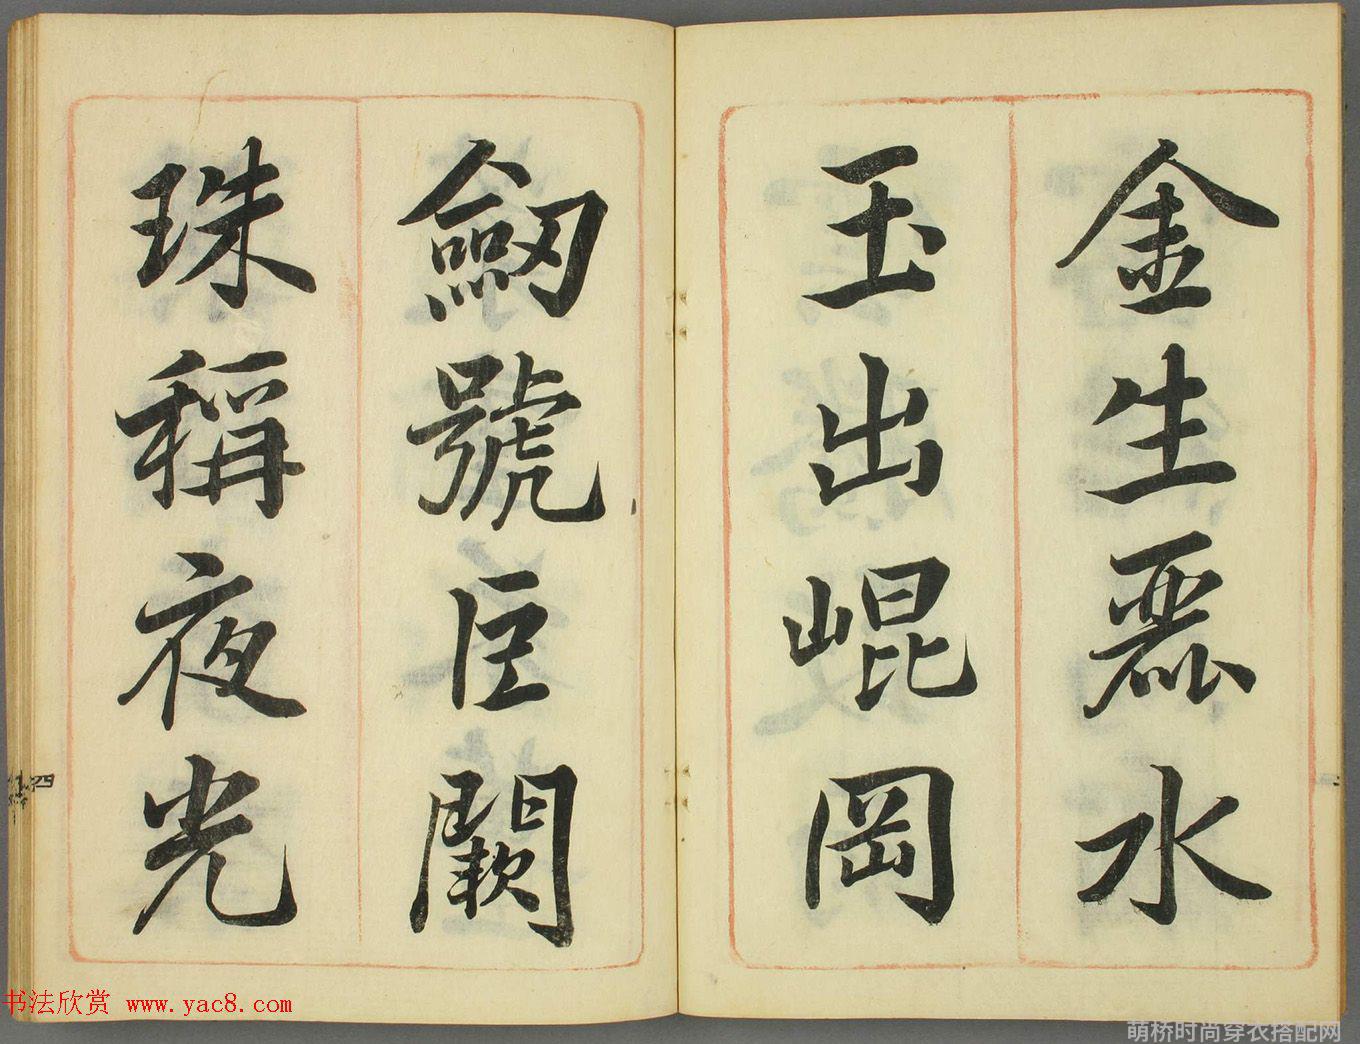 金生麗水
玉出崐岡
劒號巨闕
珠稱夜光
四
书法欣赏 www.yac8.com
萌桥时尚穿衣搭配网